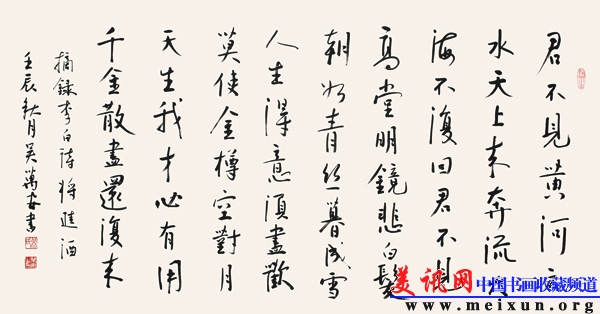 君不見黄河之
水天上来奔流
海不復回君不見
高堂明鏡悲白髮
朝如青丝暮成雪
人生得意須盡歡
莫使金樽空對月
天生我才必有用
千金散盡還復来
摘録李白詩將進酒
壬辰秋月吴萬書
美讯网
中国书画收藏频道
www.meixun.org